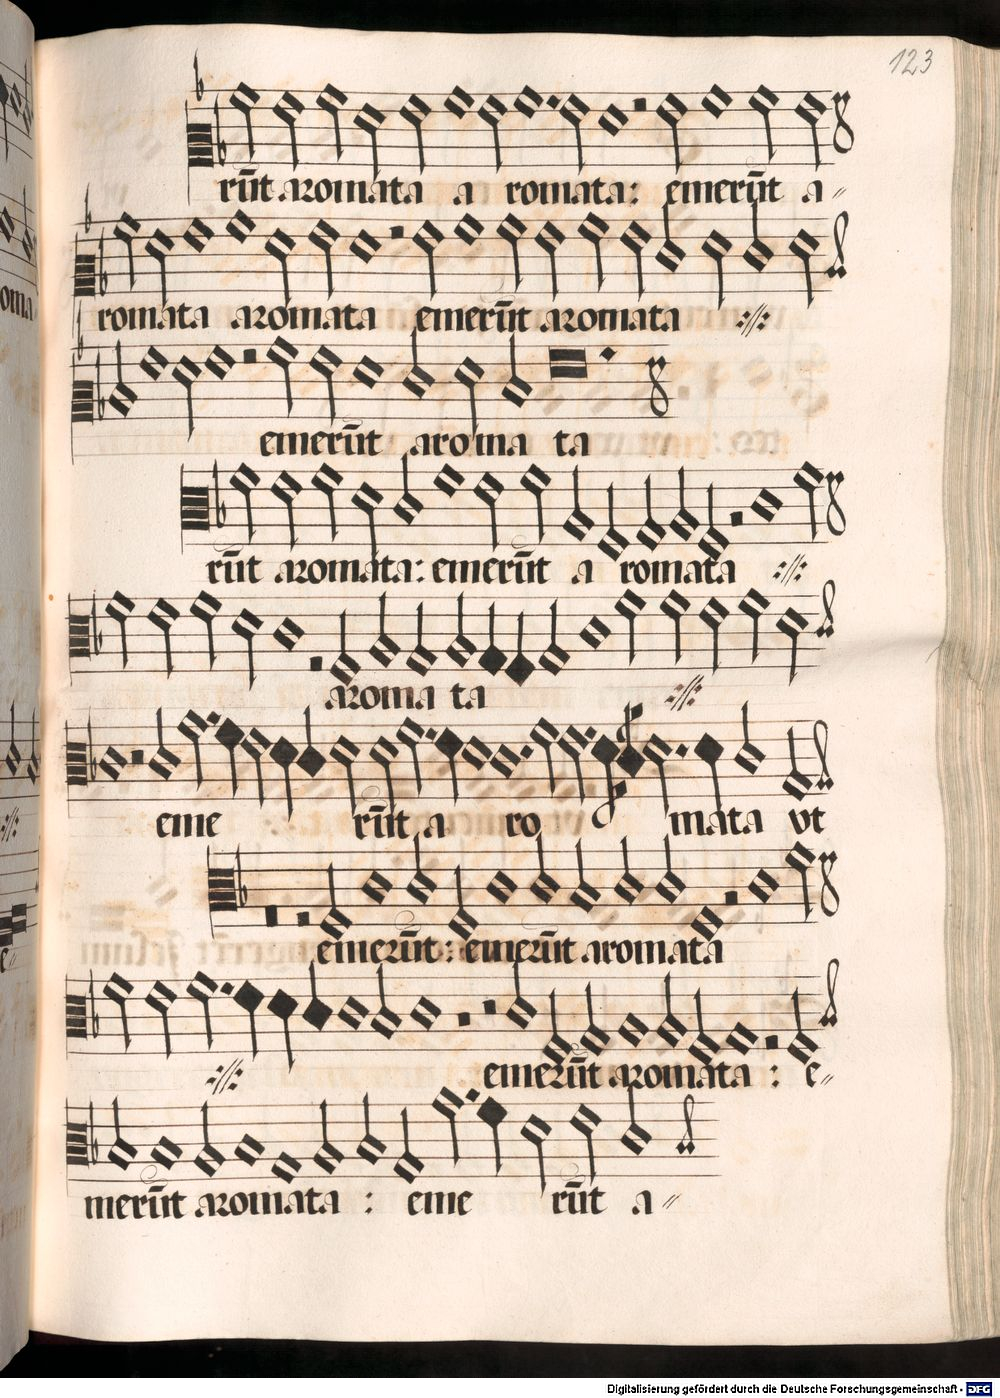 123
rūt aromata a romata: emerūt a〃
romata aromata emerūt aromata ://:
emerūt aroma ta
rūt aromata: emerūt a romata ://:
aroma ta ://:
eme rūt a ro mata vt
emerūt: emerūt aromata
://: emerūt aromata : e〃
merūt aromata : eme rūt a〃
Digitalisierung gefördert durch die Deutsche Forschungsgemeinschaft - DFG